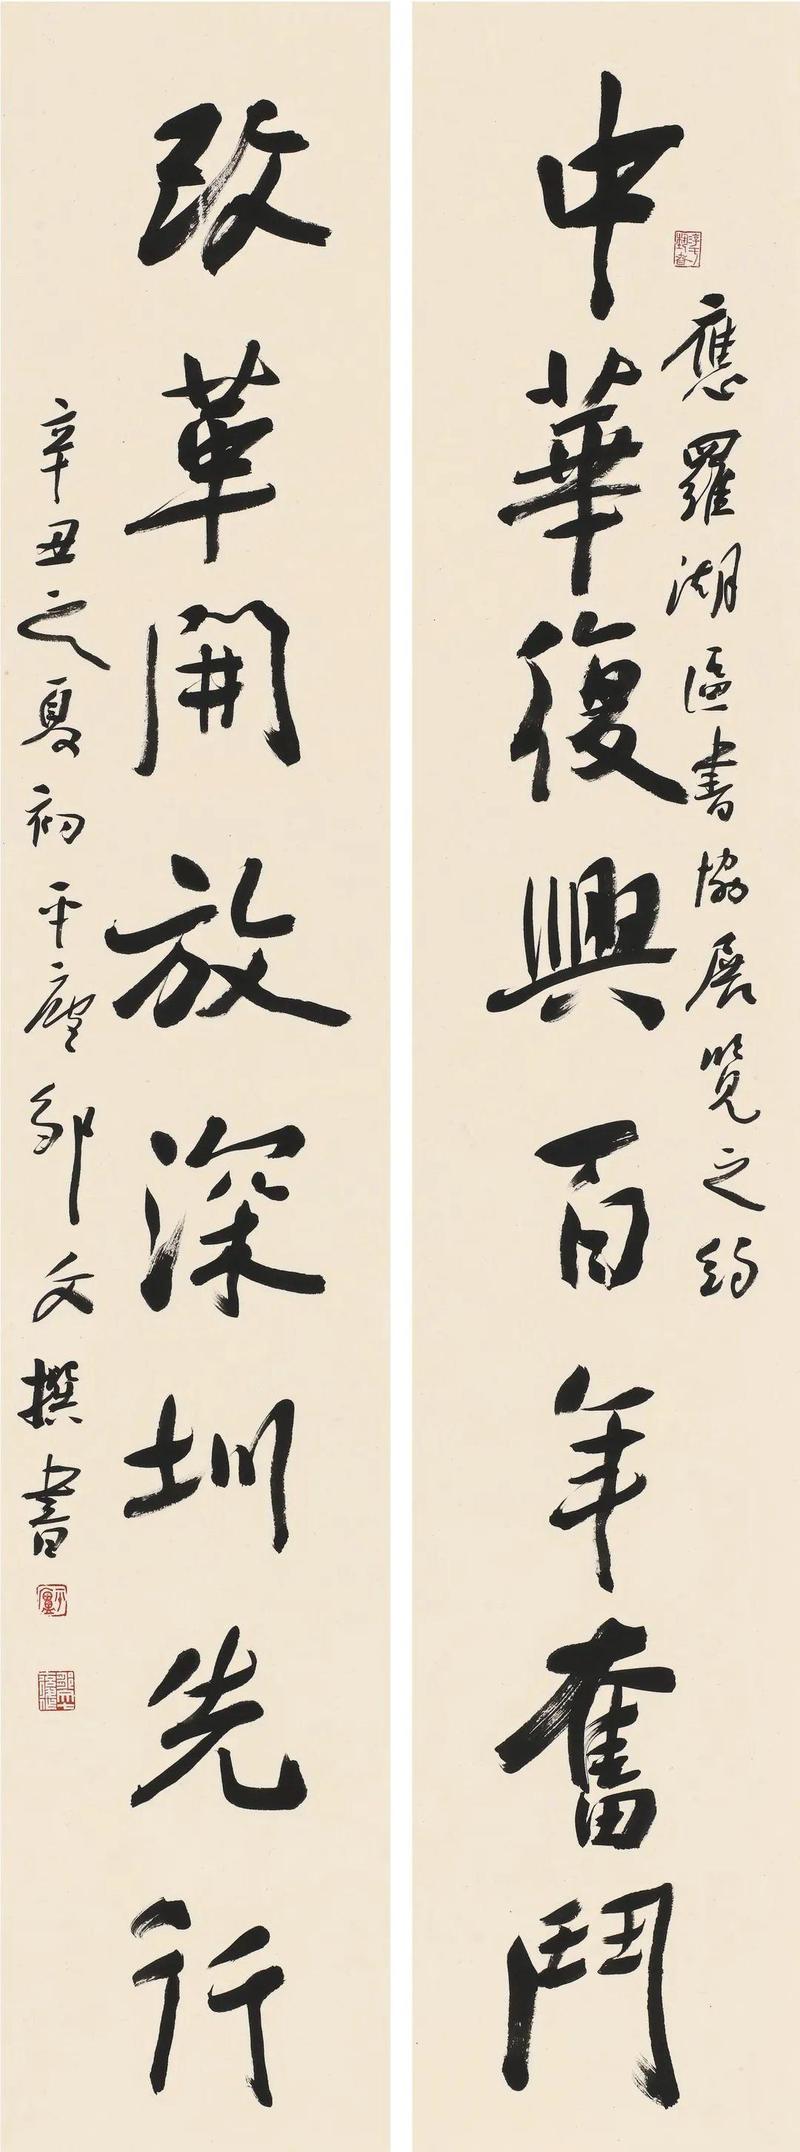 應羅湖區書協展覽之約
中華復興百年奮鬥
改革開放深圳先行
辛丑之夏初平廬鄒文撰書